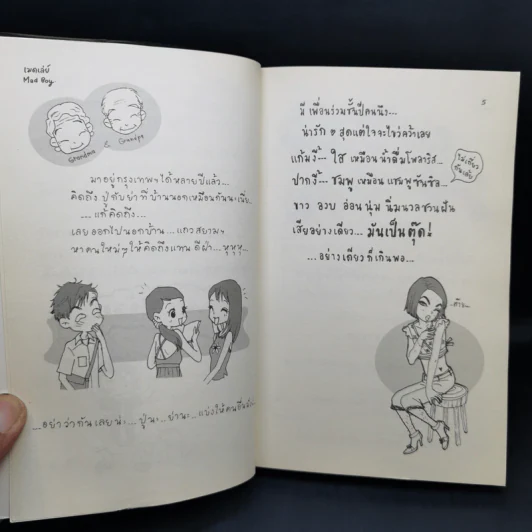 เมดเล่ย์
Mad Boy
Grandma & Grandpa
มาอยู่กรุงเทพฯได้หลายปีแล้ว...
คิดถึง ปู่กับย่า ที่ บ้านนอกเหมือนกันนะเนี่ย...
... แต่ คิดถึง...
เลย ออกไปนอกบ้าน ... แถว สยามฯ
หา คนใหม่ๆ ให้ คิดถึงแทน ดีฝ่า... หุหุหุ...
...อย่าว่ากันเลยน่ะ... ปู่นะ.. ย่านะ...แบ่งให้คนอื่น
5
มี เพื่อนร่วมชั้นปีคนนึง...
น่ารัก สุดแต่ใจจะไขว่คว้าเลย
แก้มงี้ ใส เหมือน น้ำดื่มโพลาริส
ปากงี้ ชมพู เหมือน แชมพูซันซิล...
ขาว อวบ อ่อน นุ่ม นิ่มนวลชวนฝัน
เสียอย่างเดียว... มันเป็นตุ๊ด!
... อย่างเดียว ก็เกินพอ...